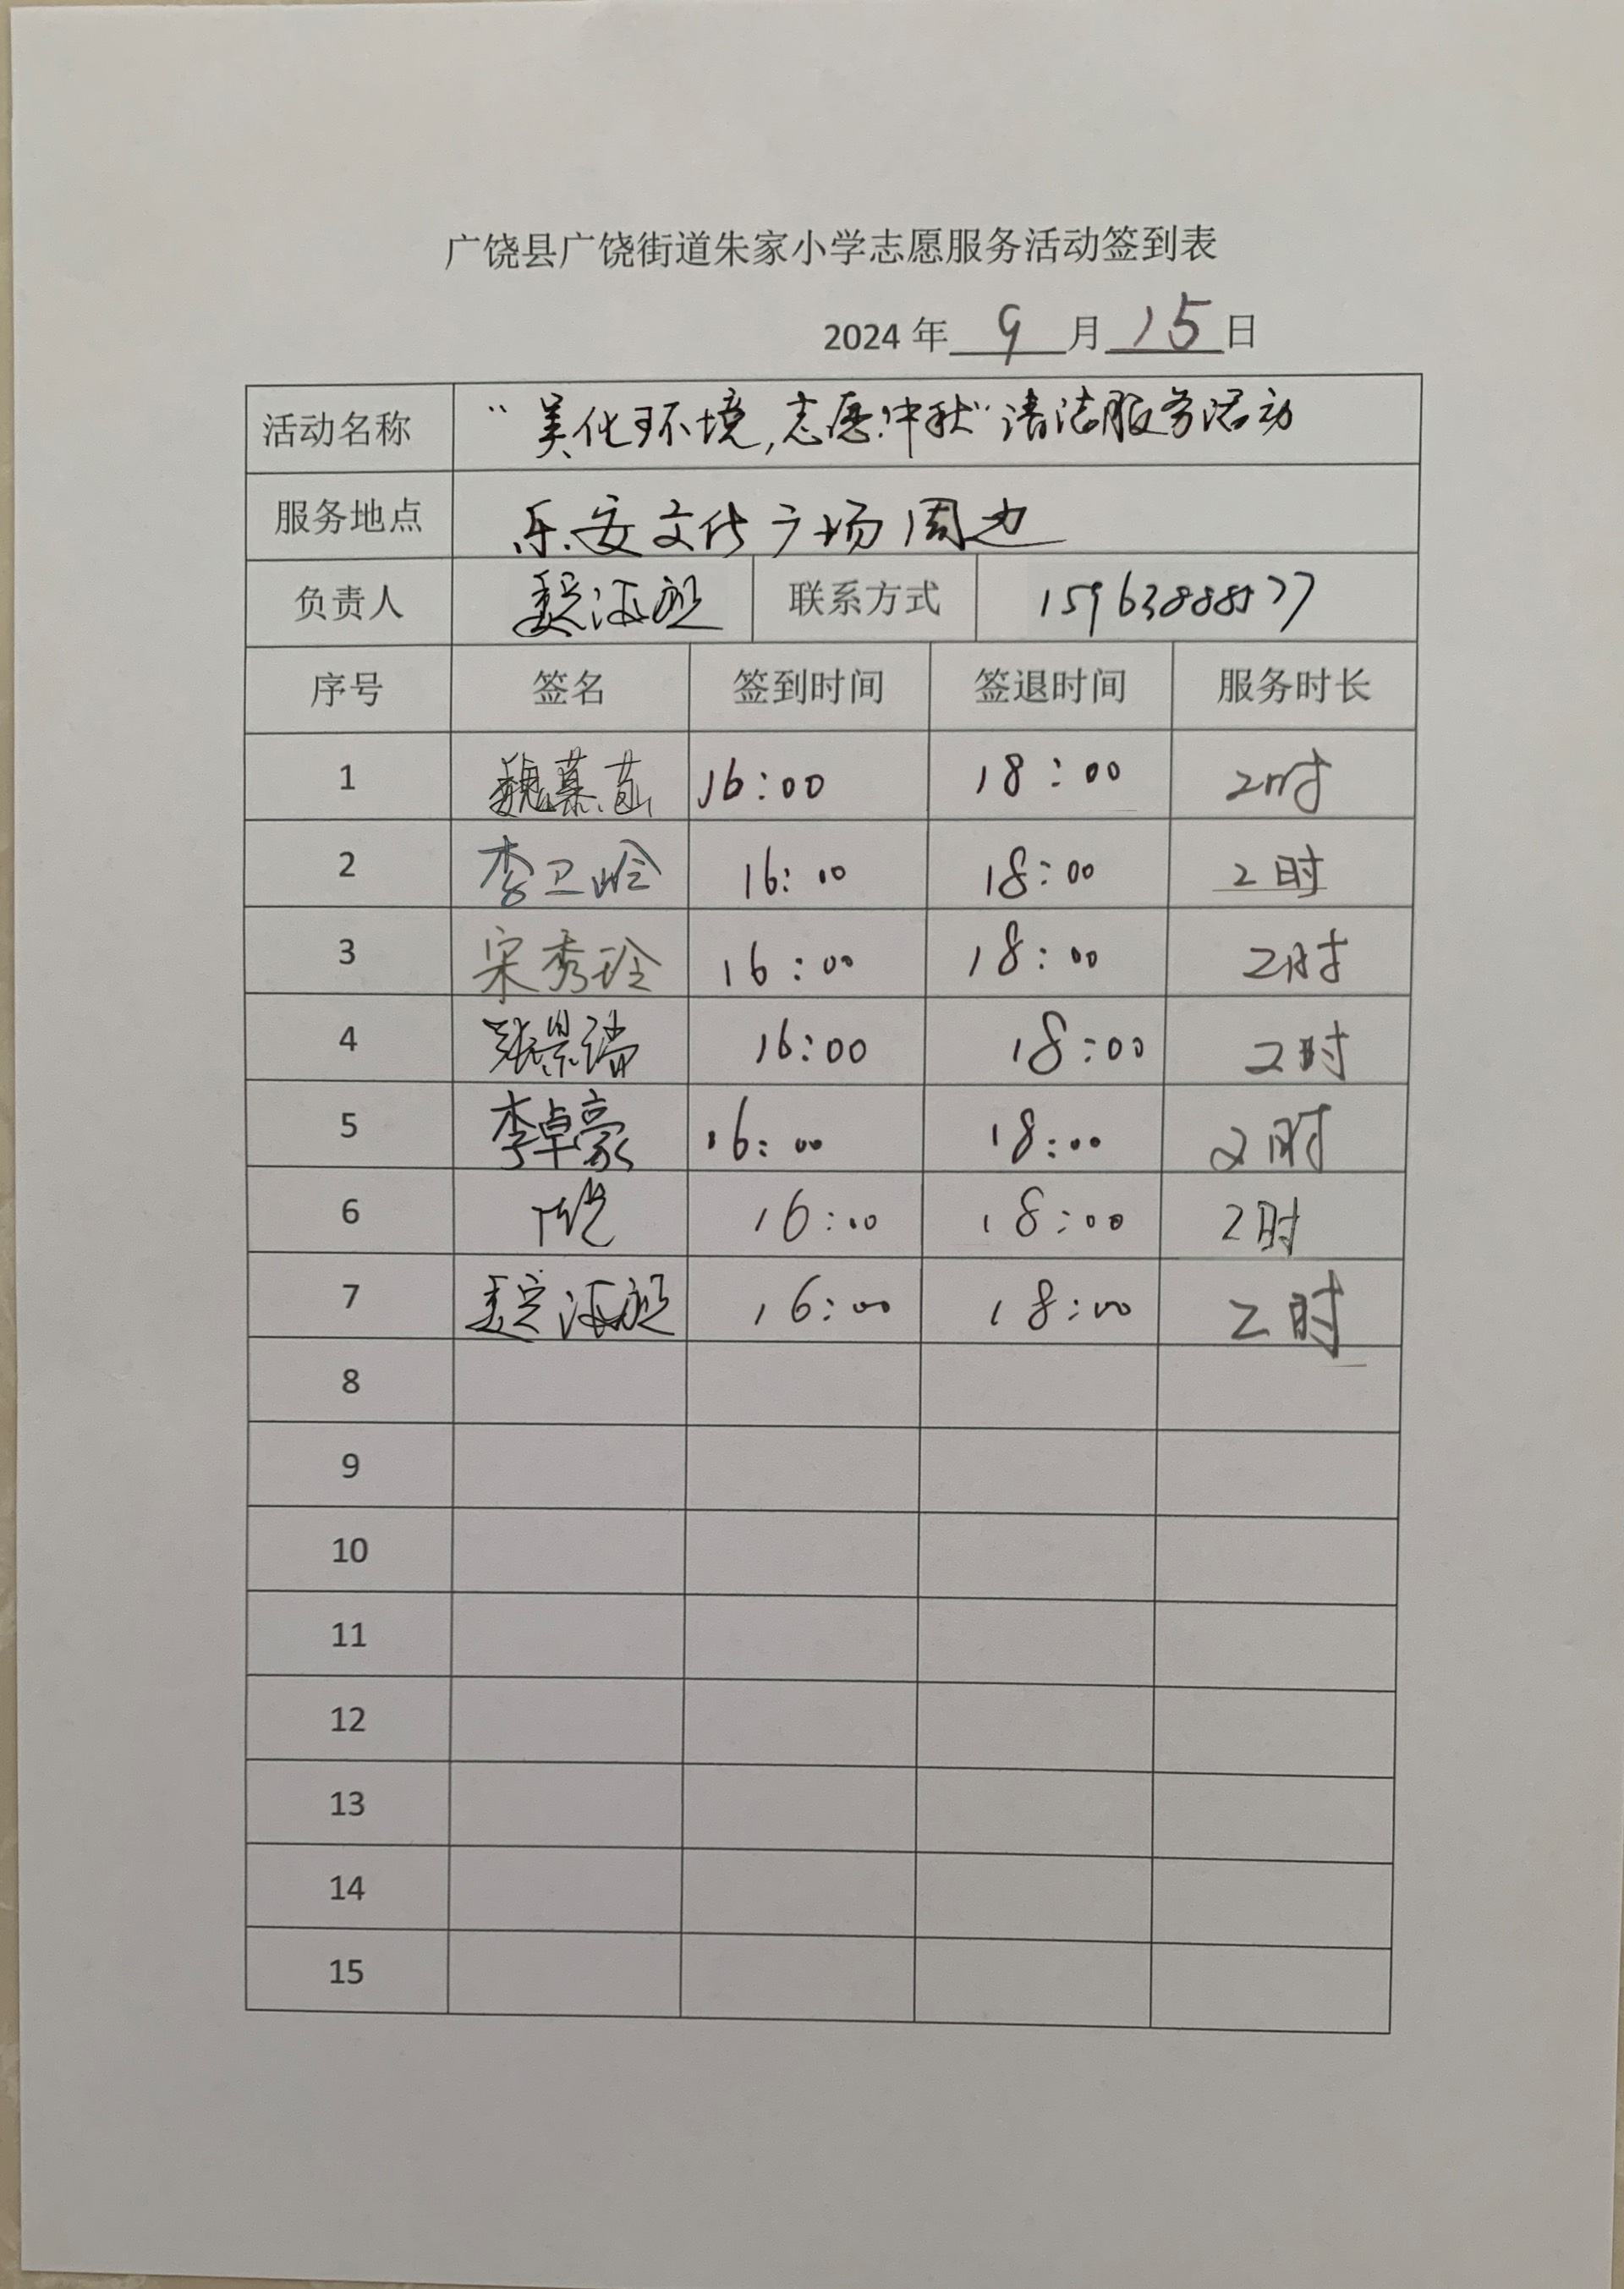 广饶县广饶街道朱家小学志愿服务活动签到表
2024 年 9 月 15 日
活动名称 “美化环境,志愿中秋”清洁服务活动
服务地点 乐安文化广场周边
负责人 魏海 联系方式
序号 签名 签到时间 签退时间 服务时长
1 魏慕 16:00 18:00 2时
2 李卫岭 16:00 18:00 2时
3 宋秀玲 16:00 18:00 2时
4 张景瑞 16:00 18:00 2时
5 李卓豪 16:00 18:00 2时
6 16:00 18:00 2时
7 魏海 16:00 18:00 2时
8
9
10
11
12
13
14
15